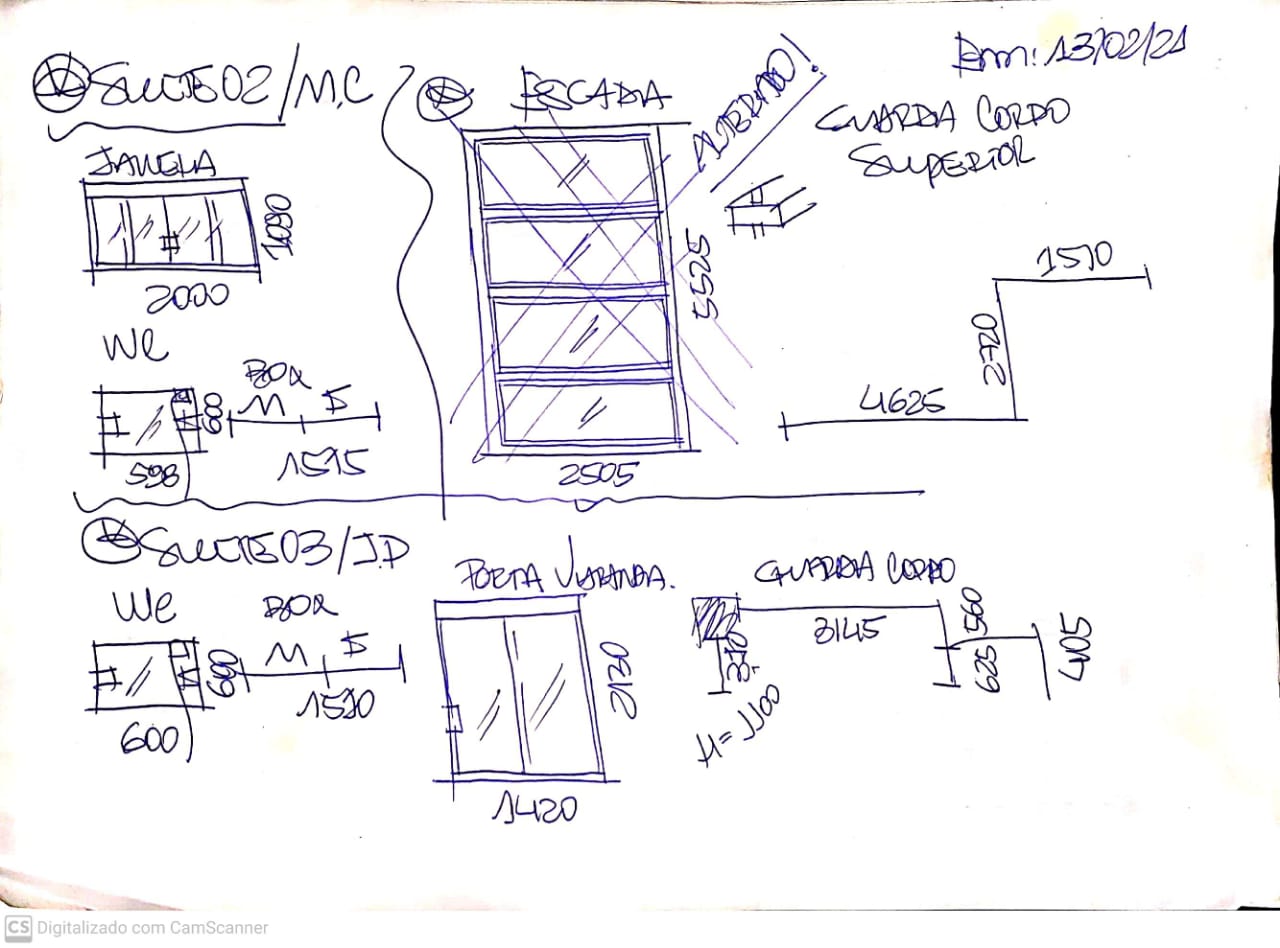 Em: 13/02/21
SUITE 02 / M.C
JANELA
1090
2000
WC
600
598
BOX
M F
1575
ESCADA
ALTERADO!
5525
2505
GUARDA CORPO
SUPERIOR
1510
2720
4625
SUITE 03 / J.P
WC
600
600
BOX
M F
1570
PORTA VARANDA.
2130
1420
GUARDA CORPO
3145
560
625
405
H= 1100
CS Digitalizado com CamScanner